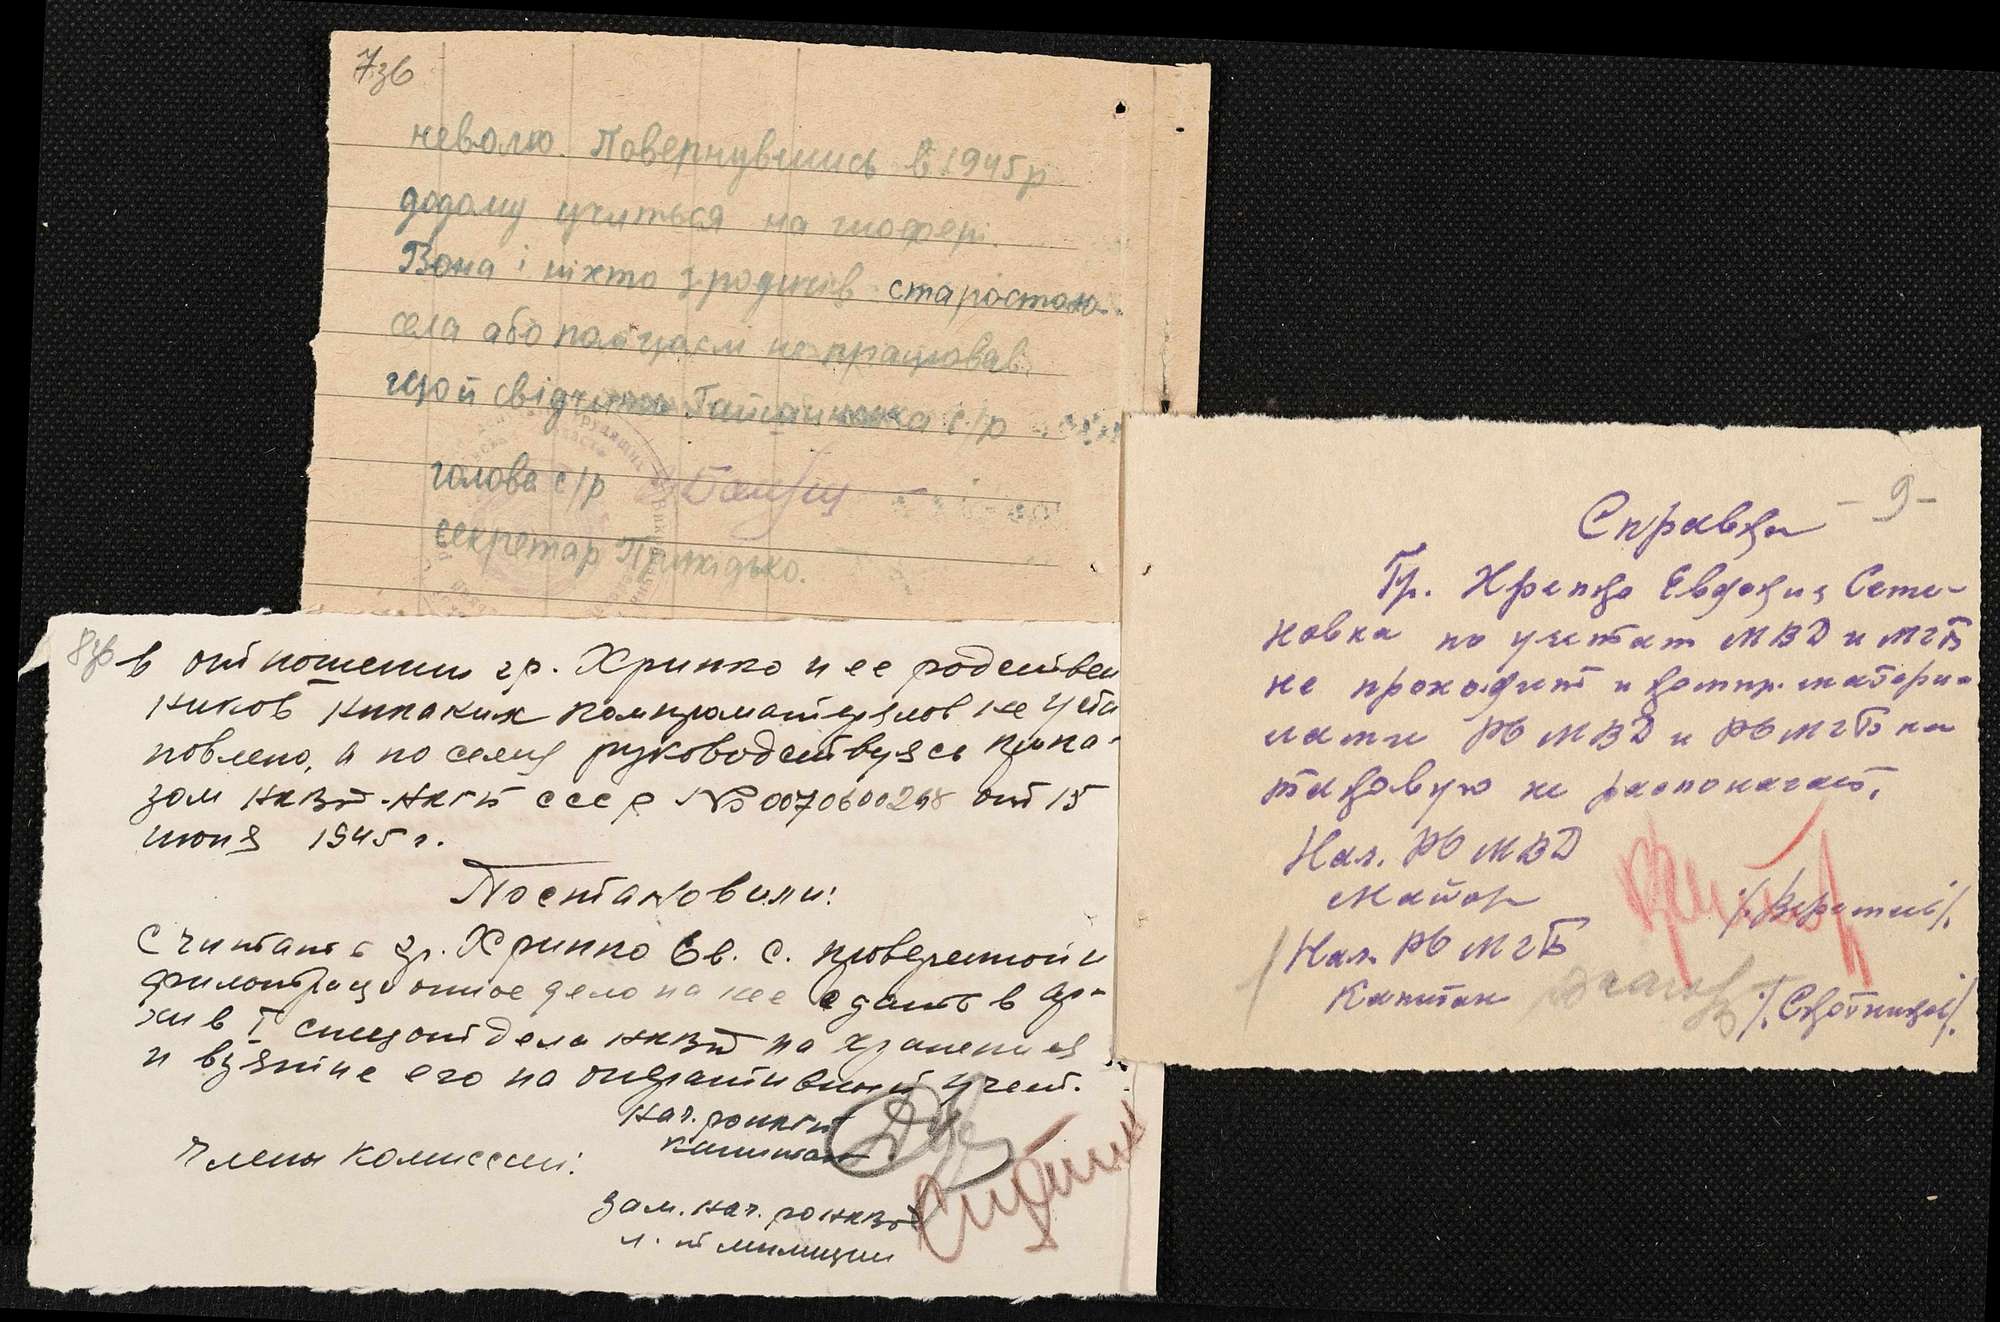 7зв
неволю. Повернувшись в 1945 р
додому учиться на шофері.
Вона і ніхто з родичів старостою
села або поліцаєм не працював,
що й свідчить с/р
голова с/р
секретар Прихідько.
8зв
в отношении гр. Хрипко и ее родствен
ников никаких компроматерялов не уста
новлено, а по сему руководствуясь прика-
зом НКВД-НКГБ СССР № 00706/00268 от 15
июня 1945 г.
Постановили:
Считать гр. Хрипко Ев. С. проверенной и
фильтрационное дело на нее сдать в ар-
хив I спецотдела НКВД на хранения
и взятие его на оперативный учет.
Члены комиссии:
нач. РОНКГБ
капитан
зам. нач. РОНКВД
л-т милиции
- 9 -
Справка
Гр. Хрепко Евдокия Семе-
новна по учетам МВД и МГБ
не проходит и компр. матери-
лами РО МВД и РО МГБ на
таковую не располагает.
Нач. РО МВД
Майор
Нач. РО МГБ
Капитан /Скотников/.